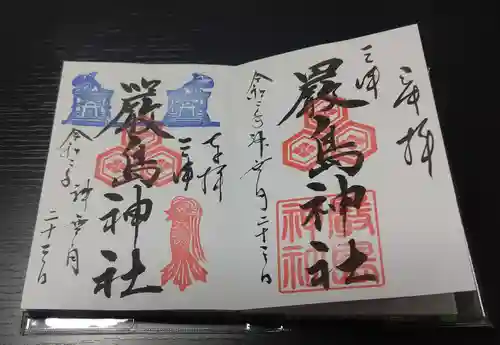 奉拝
三津
嚴島神社
嚴島神社
令和二年神無月二十三日
奉拝
三津
嚴島神社
令和二年神無月
二十三日